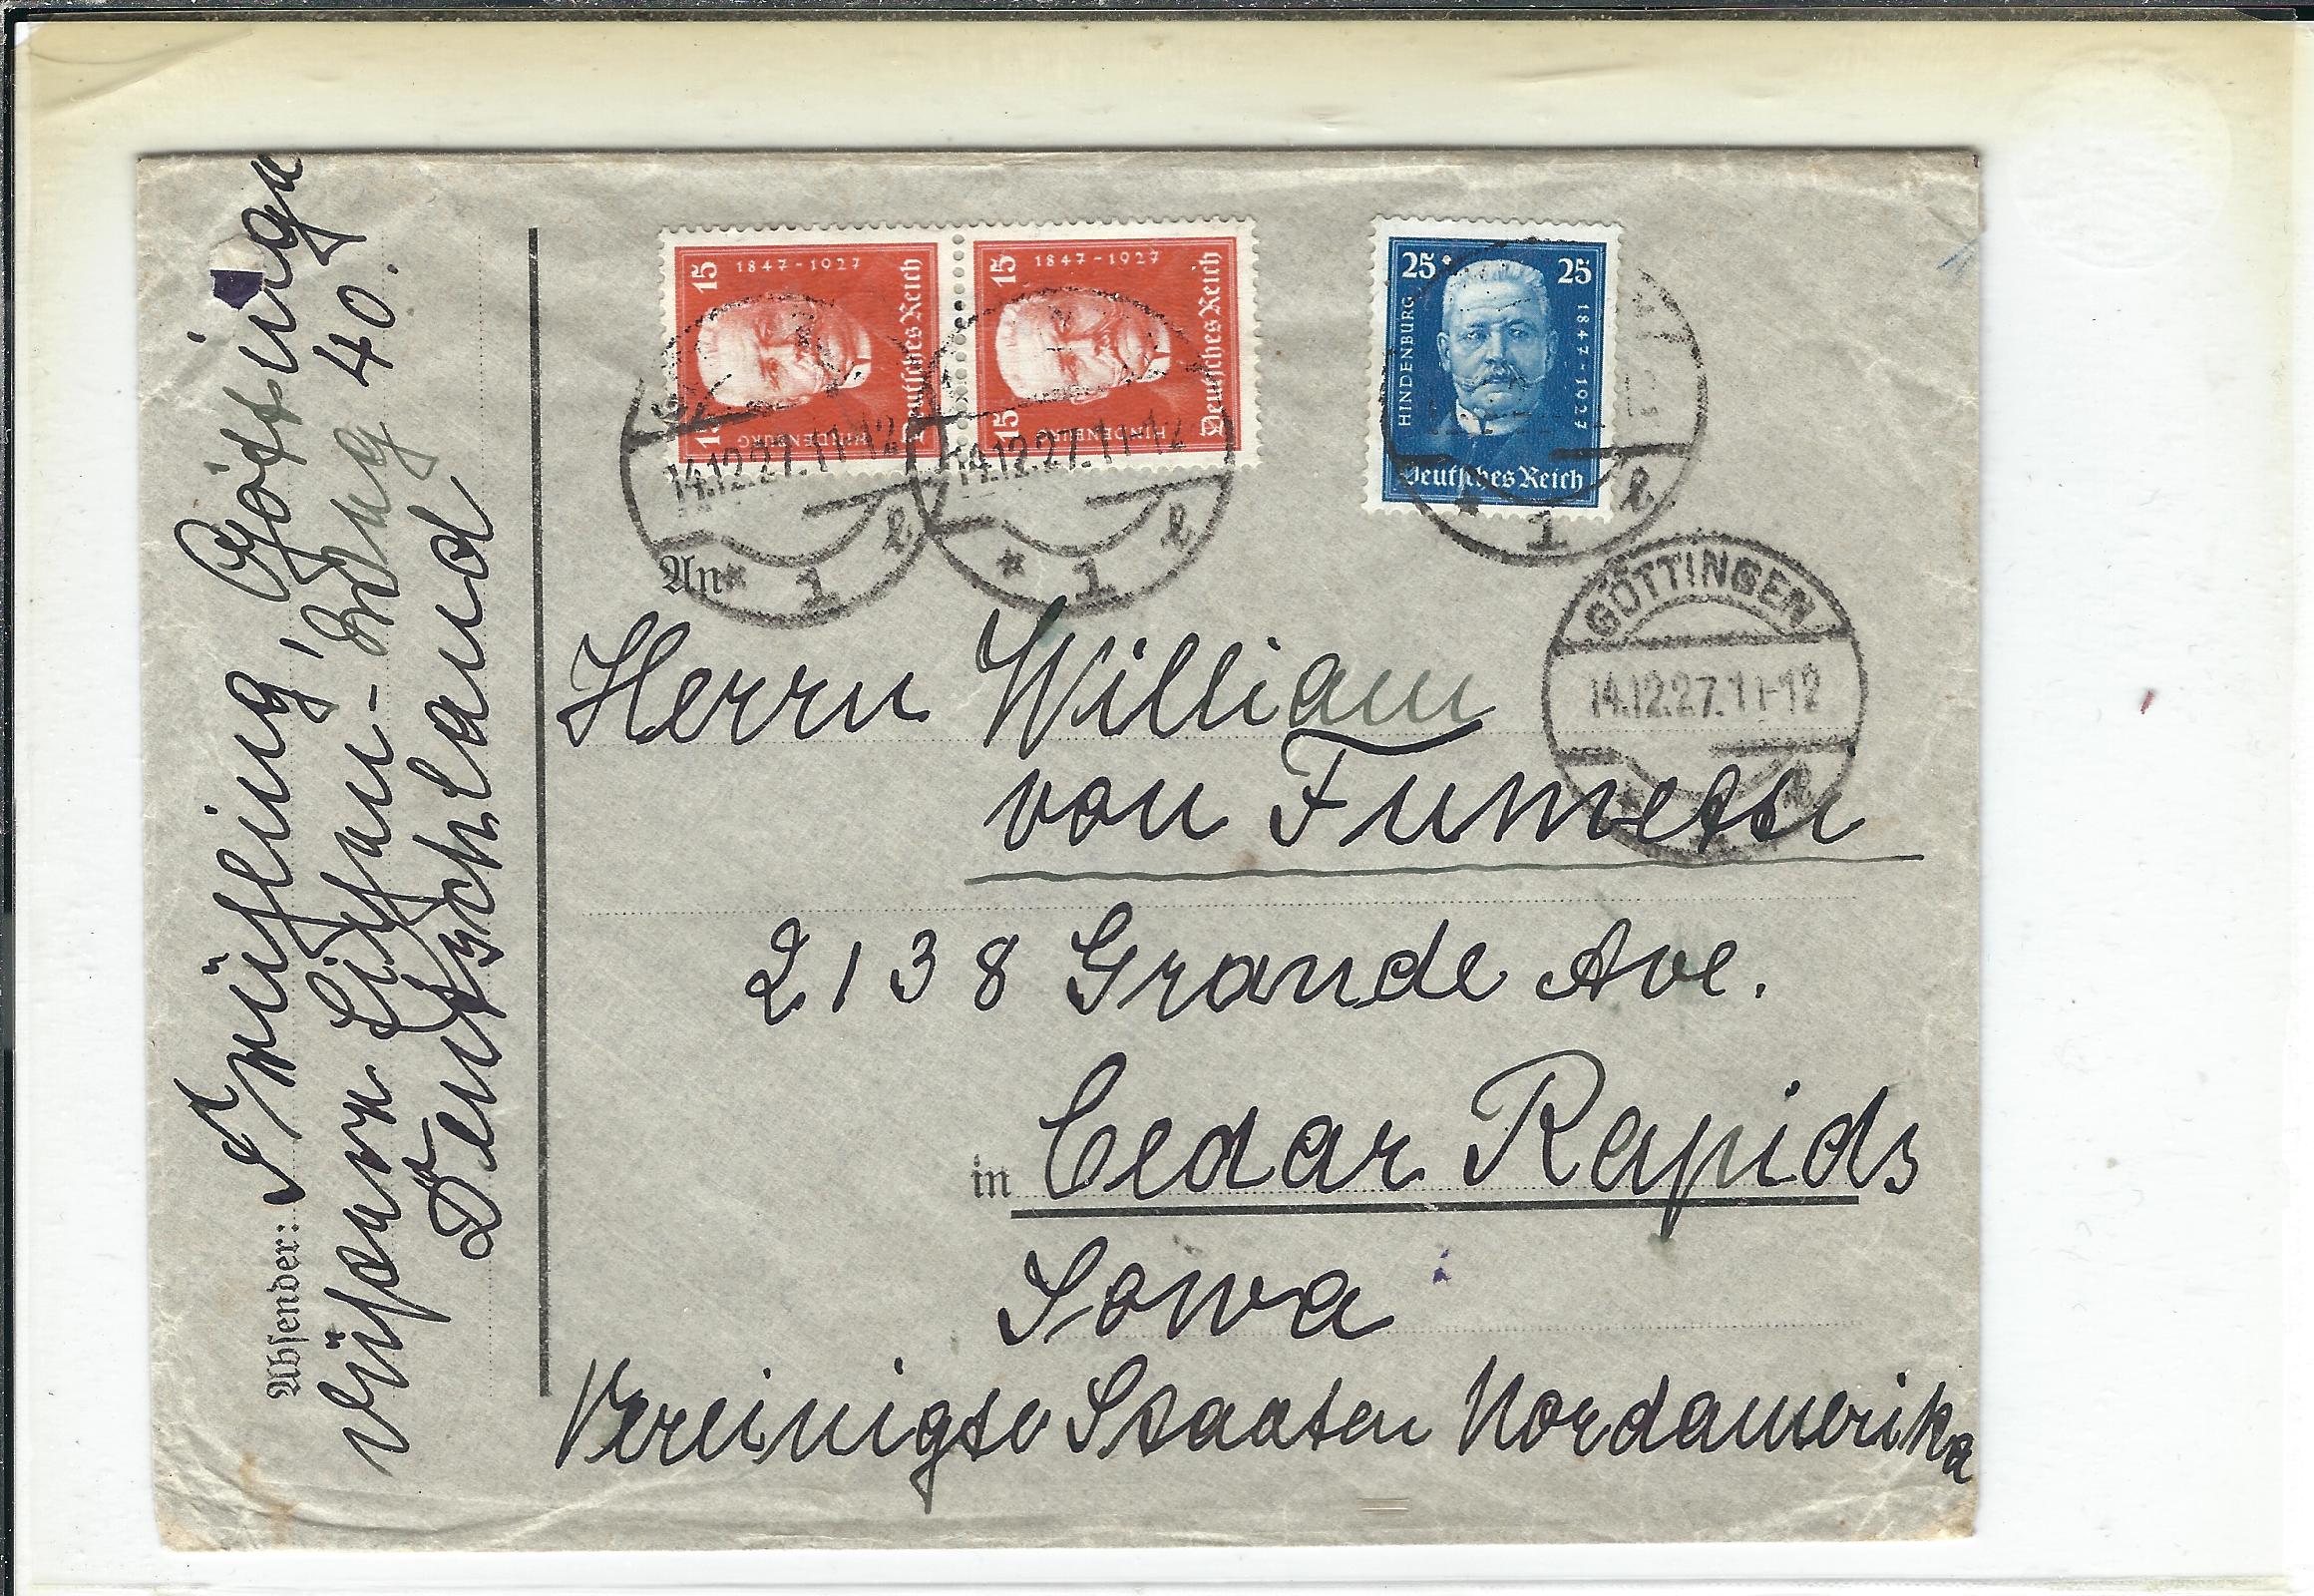 15 1847-1927 15 HINDENBURG Deutsches Reich
15 1847-1927 15 HINDENBURG Deutsches Reich
25 25 HINDENBURG 1847-1927 Deutsches Reich
14.12.27.11-12 * 1 l
14.12.27.11-12 * 1 l
* 1 l
GÖTTINGEN
14.12.27.11-12
* l
An
Herrn William
von
2138 Grande Ave.
in Cedar Rapids
Iowa
Vereinigte Staaten Nordamerika
Absender:
Göttingen
Weg 40.
Deutschland